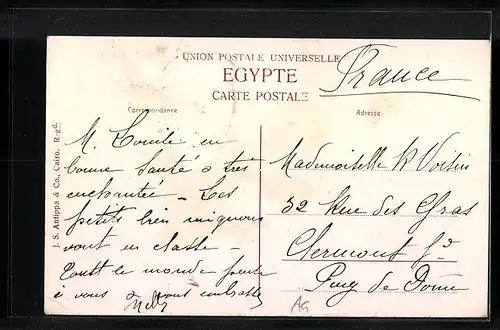 UNION POSTALE UNIVERSELLE
EGYPTE
CARTE POSTALE
France
Correspondance
Adresse
J. S. Antippa & Co., Cairo. R-gd.
M. en
bonne santé & très
enchantée — Les
petits bien mignons
vont en classe —
tout le monde pense
à vous vous embrasse
Nelly
Mademoiselle R Voisin
32 Rue des Gras
Clermont Fd
Puy de Dôme
AG